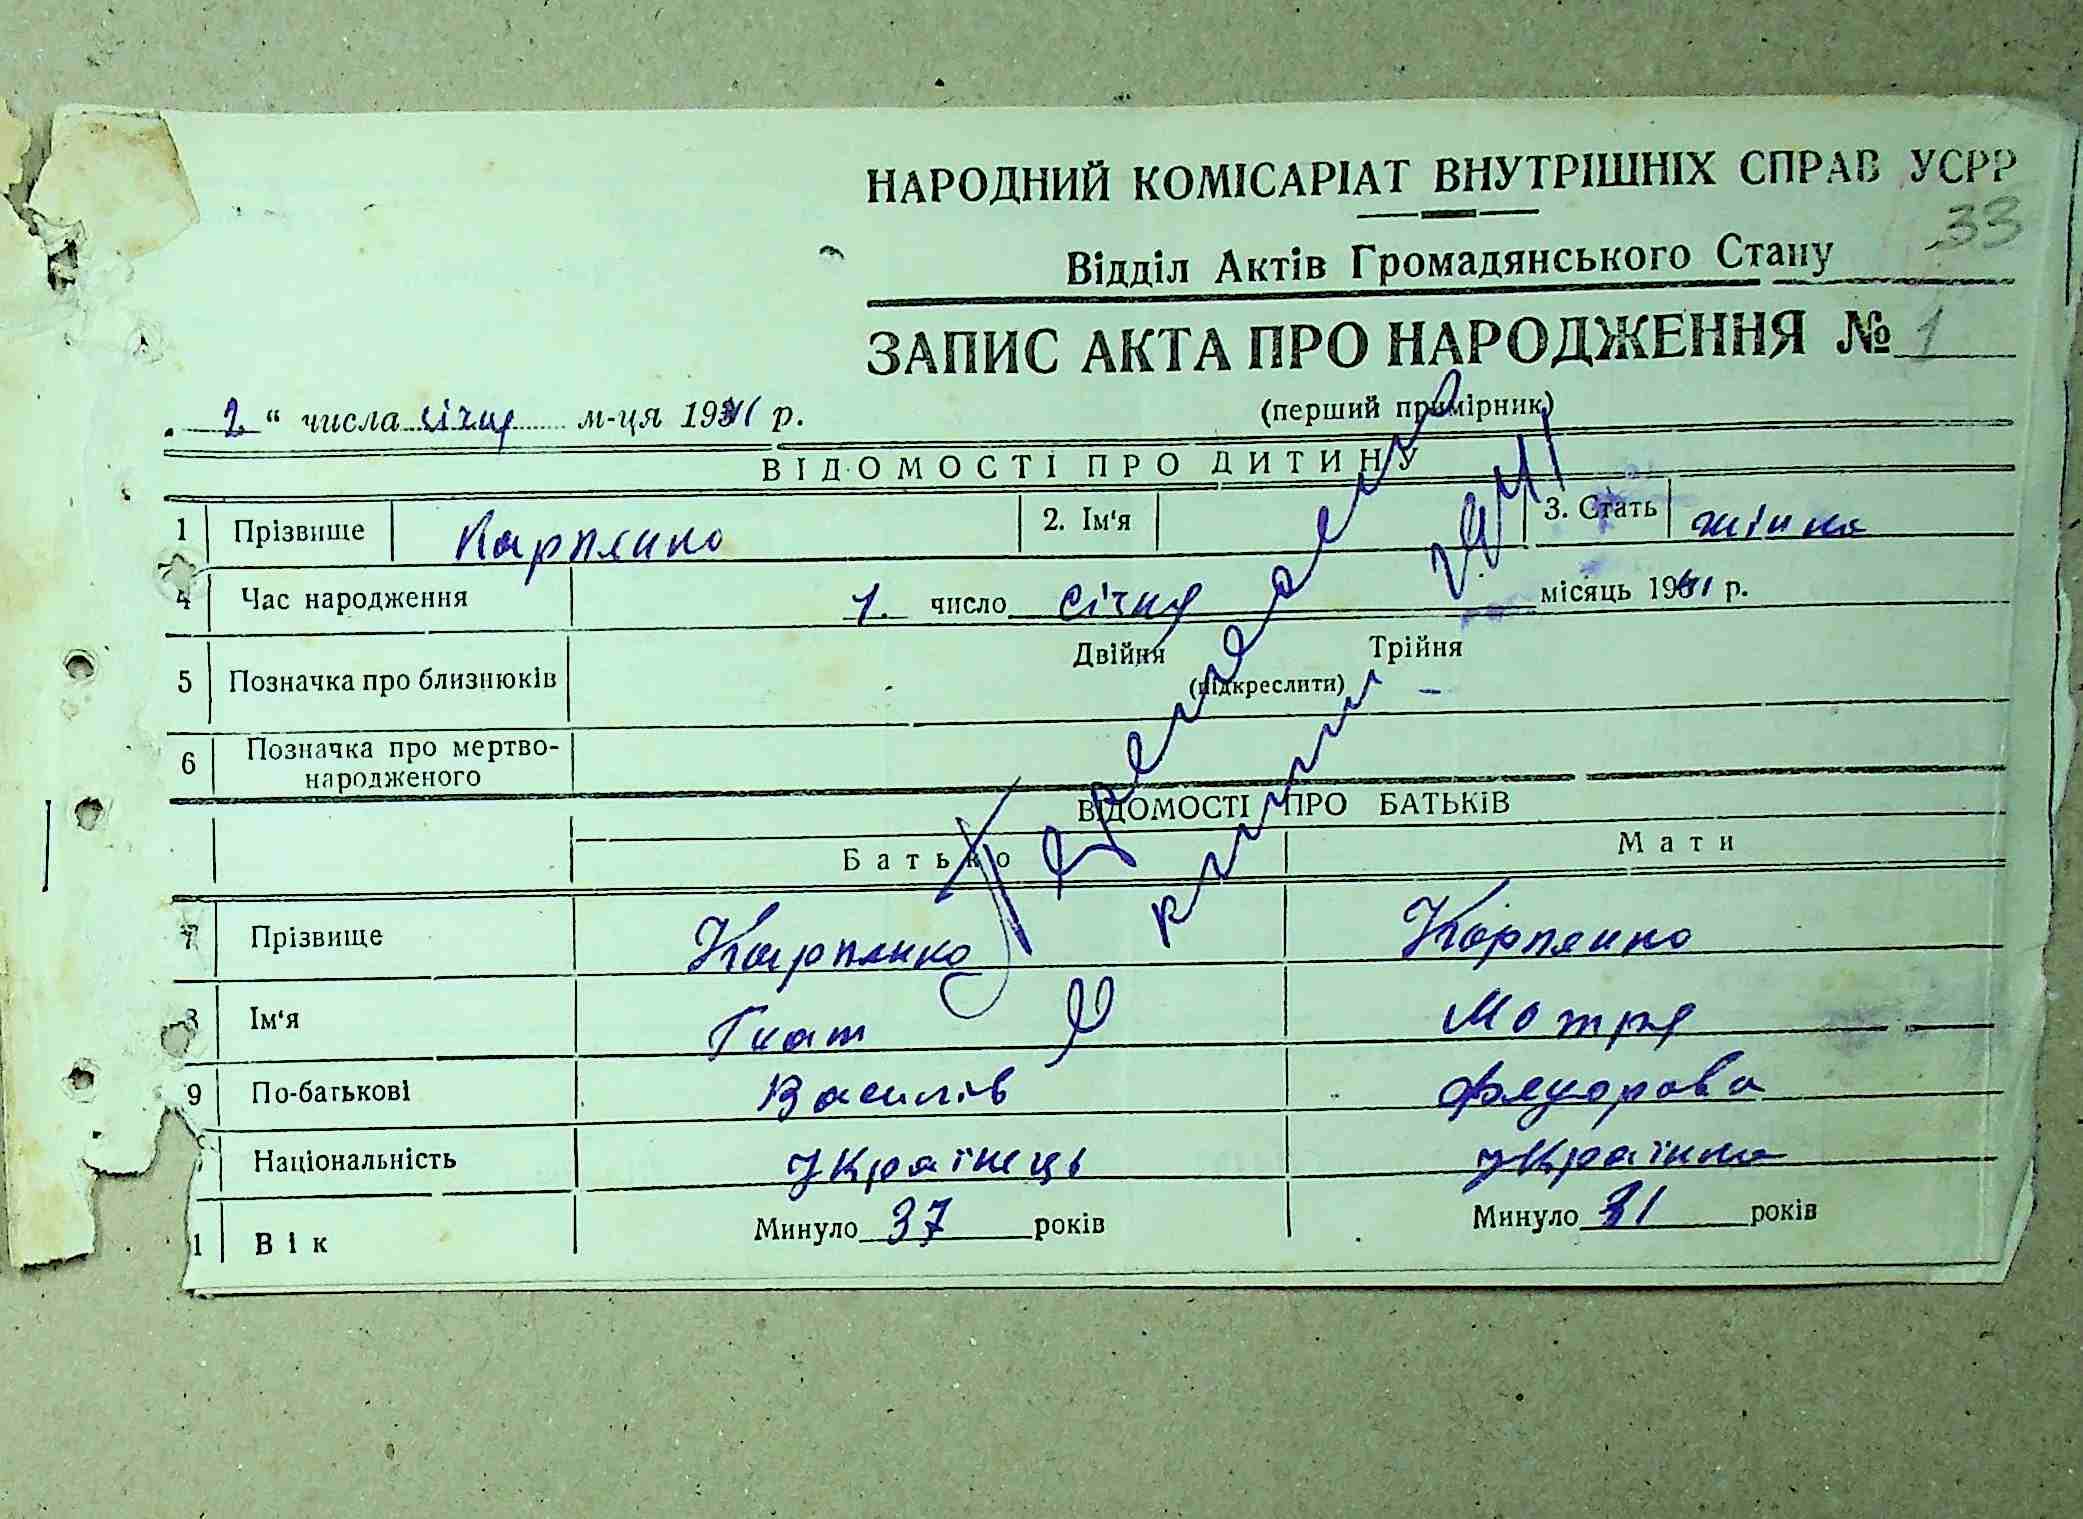 НАРОДНИЙ КОМІСАРІАТ ВНУТРІШНІХ СПРАВ УСРР
33
Відділ Актів Громадянського Стану
ЗАПИС АКТА ПРО НАРОДЖЕННЯ № 1
2 “ числа січня м-ця 1941 р.
(перший примірник)
ВІДОМОСТІ ПРО ДИТИНУ
1 Прізвище Карпянко 2. Ім‘я 3. Стать жінка
4 Час народження 1. число січня місяць 1941 р.
5 Позначка про близнюків Двійня Трійня
(підкреслити)
6 Позначка про мертво-
народженого
ВІДОМОСТІ ПРО БАТЬКІВ
Батько Мати
7 Прізвище Карпянко Карпянко
8 Ім‘я Гнат Мотря
9 По-батькові Василів Фядорова
Національність Українець Українка
1 Вік Минуло 37 років Минуло 31 років